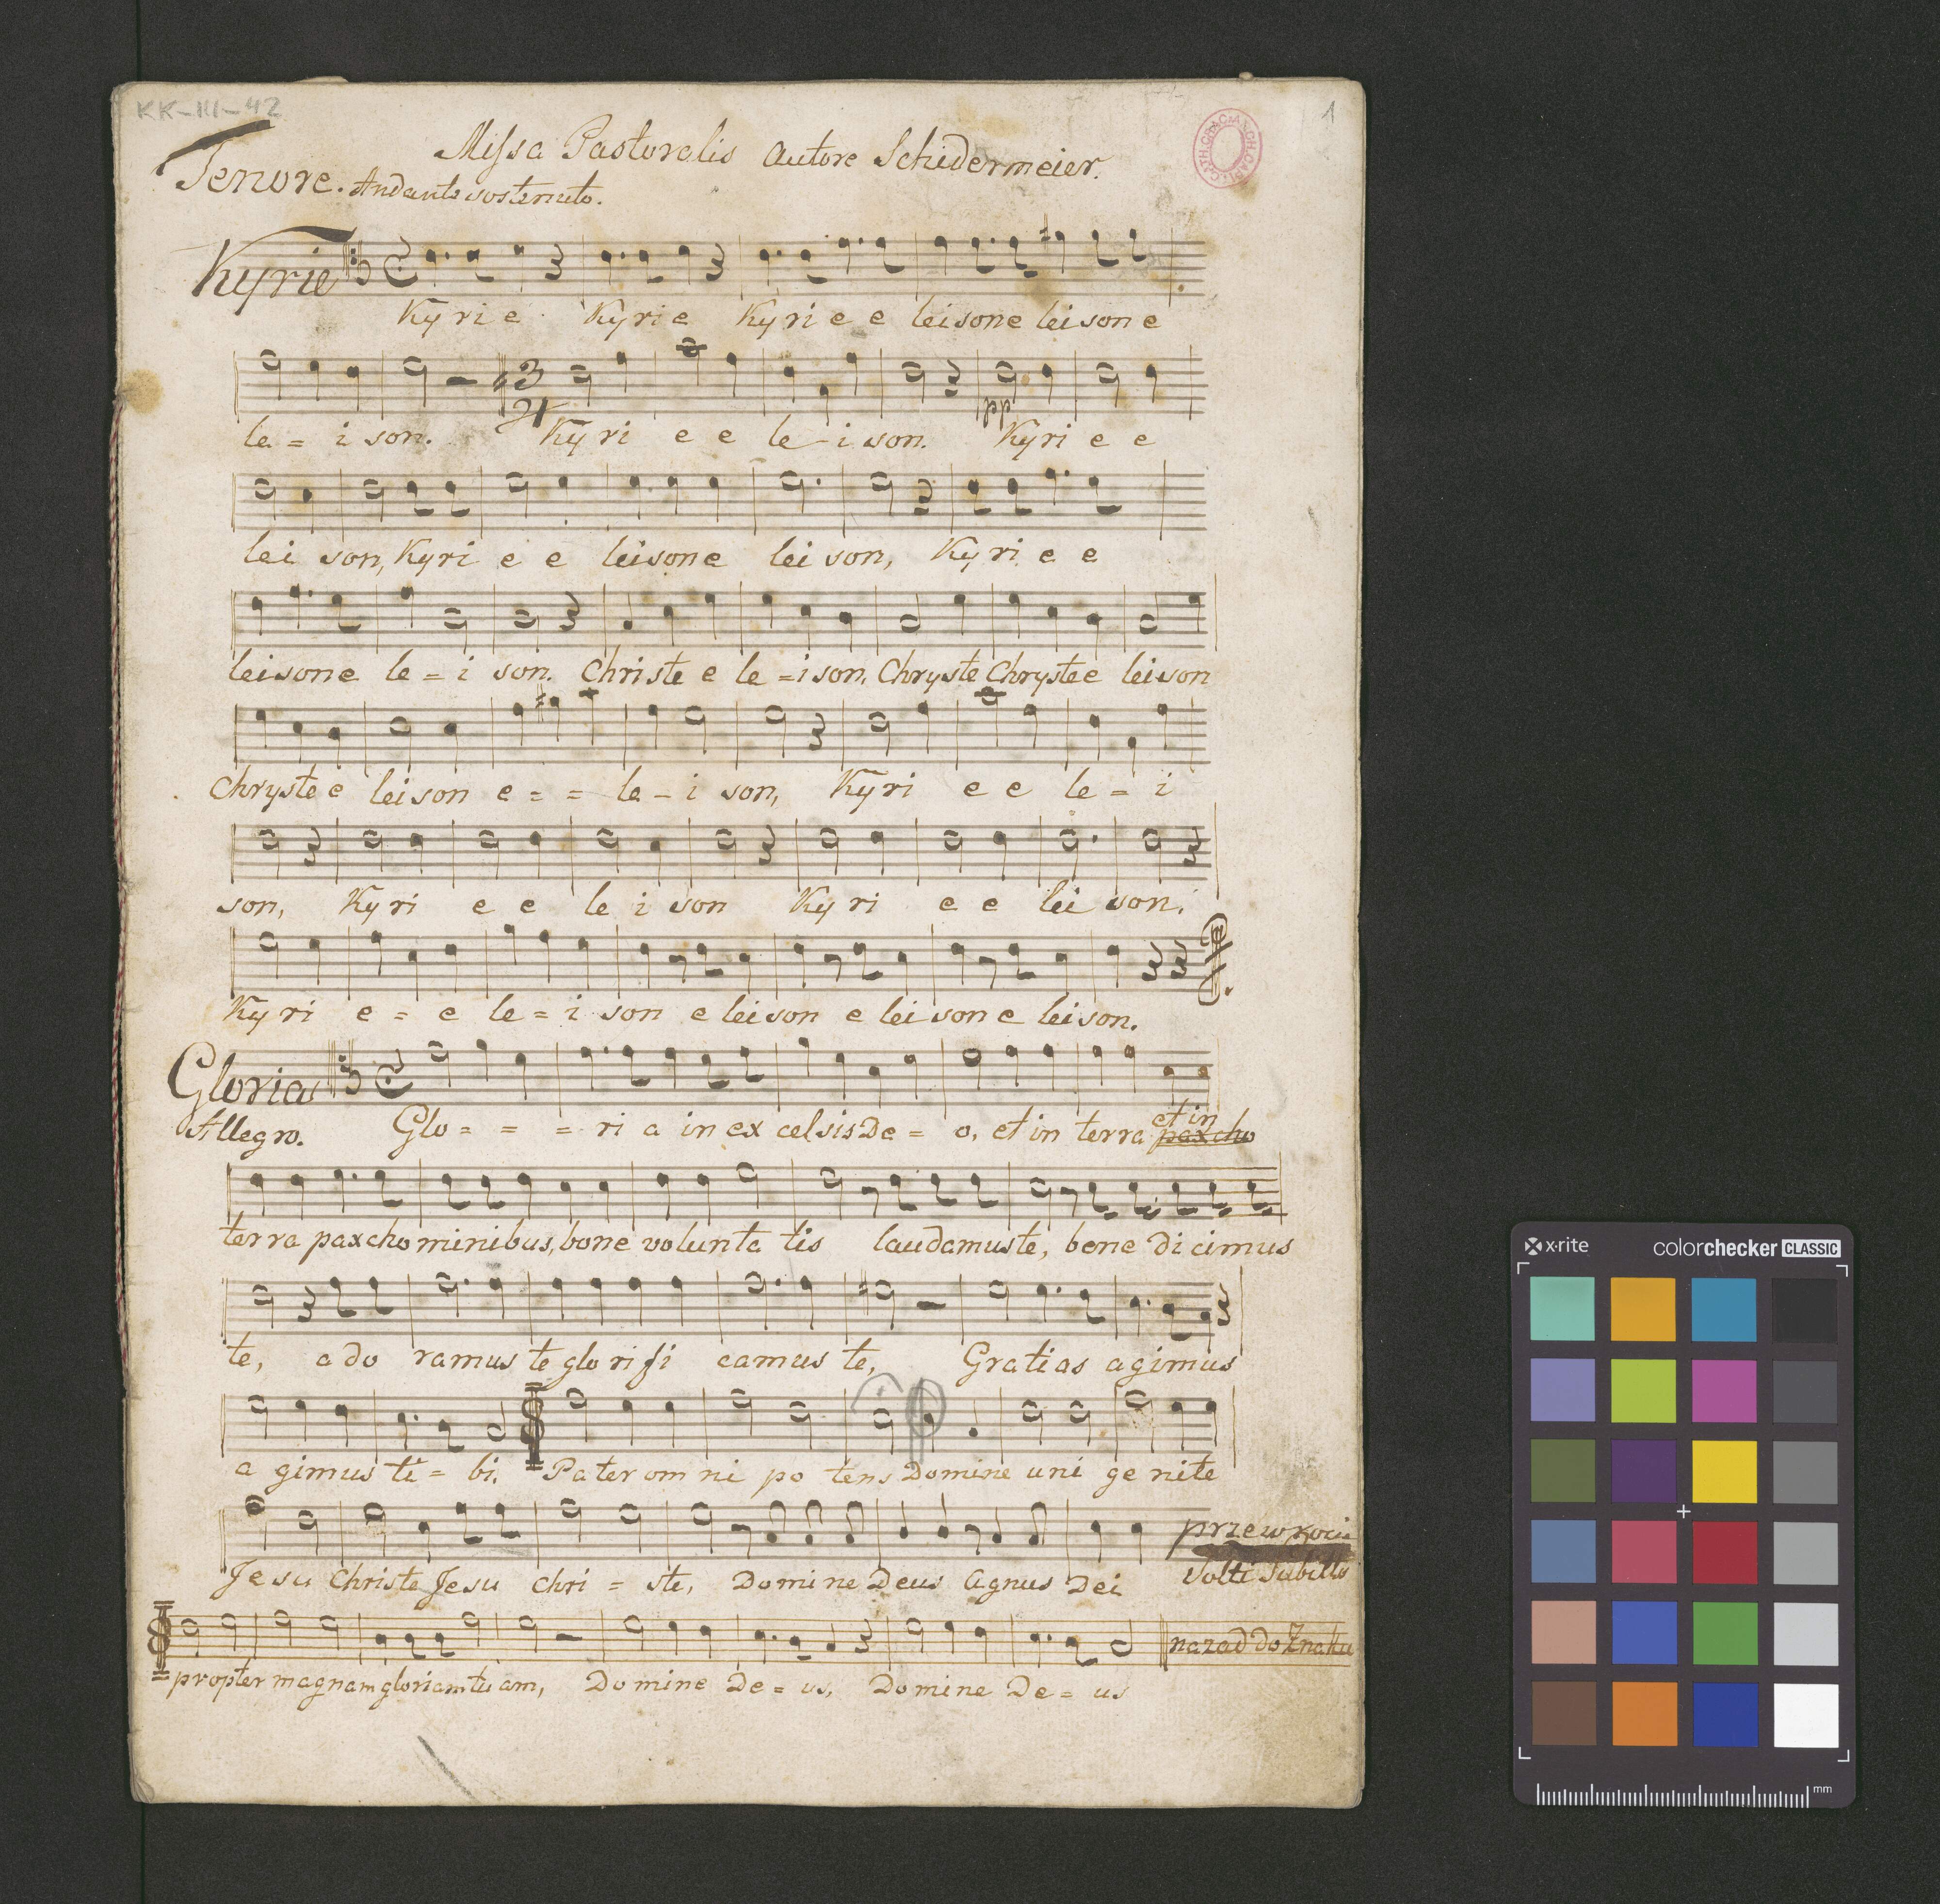 KK-III-42
1
Missa Pastoralis Autore Schidermeier.
Tenore. Andante sostenuto.
Kyrie
Ky ri e Kyrie Ky ri e e leisone leison e
le = i son. Ky ri e e le - i son. Kyri e e
lei son, Kyri e e leisone lei son, Ky ri e e
leisone le = i son. Christe e le = i son, Chryste Chryste e leison
Chryste e leison e = = le - i son, Ky ri e e le = i
son, Ky ri e e le i son Ky ri e e lei son,
Ky ri e = e le = i son e leison e leisone leison.
Gloria
Allegro. Glo = = = ri a in ex celsis De = o, et in terra et in pax cho
terra pax cho minibus, bone volunta tis laudamus te, bene di cimus
te, a do ramus te glo ri fi camus te, Gratias agimus
a gimus ti = bi. Pater om ni po tens Domine uni ge nite
Jesu Christe Jesu Chri = ste, Domine Deus Agnus Dei
Volti Subitto
propter magnam gloriam tu am, Do mine De = us, Do mine De = us
nazad do Znaku
x·rite colorchecker CLASSIC
mm